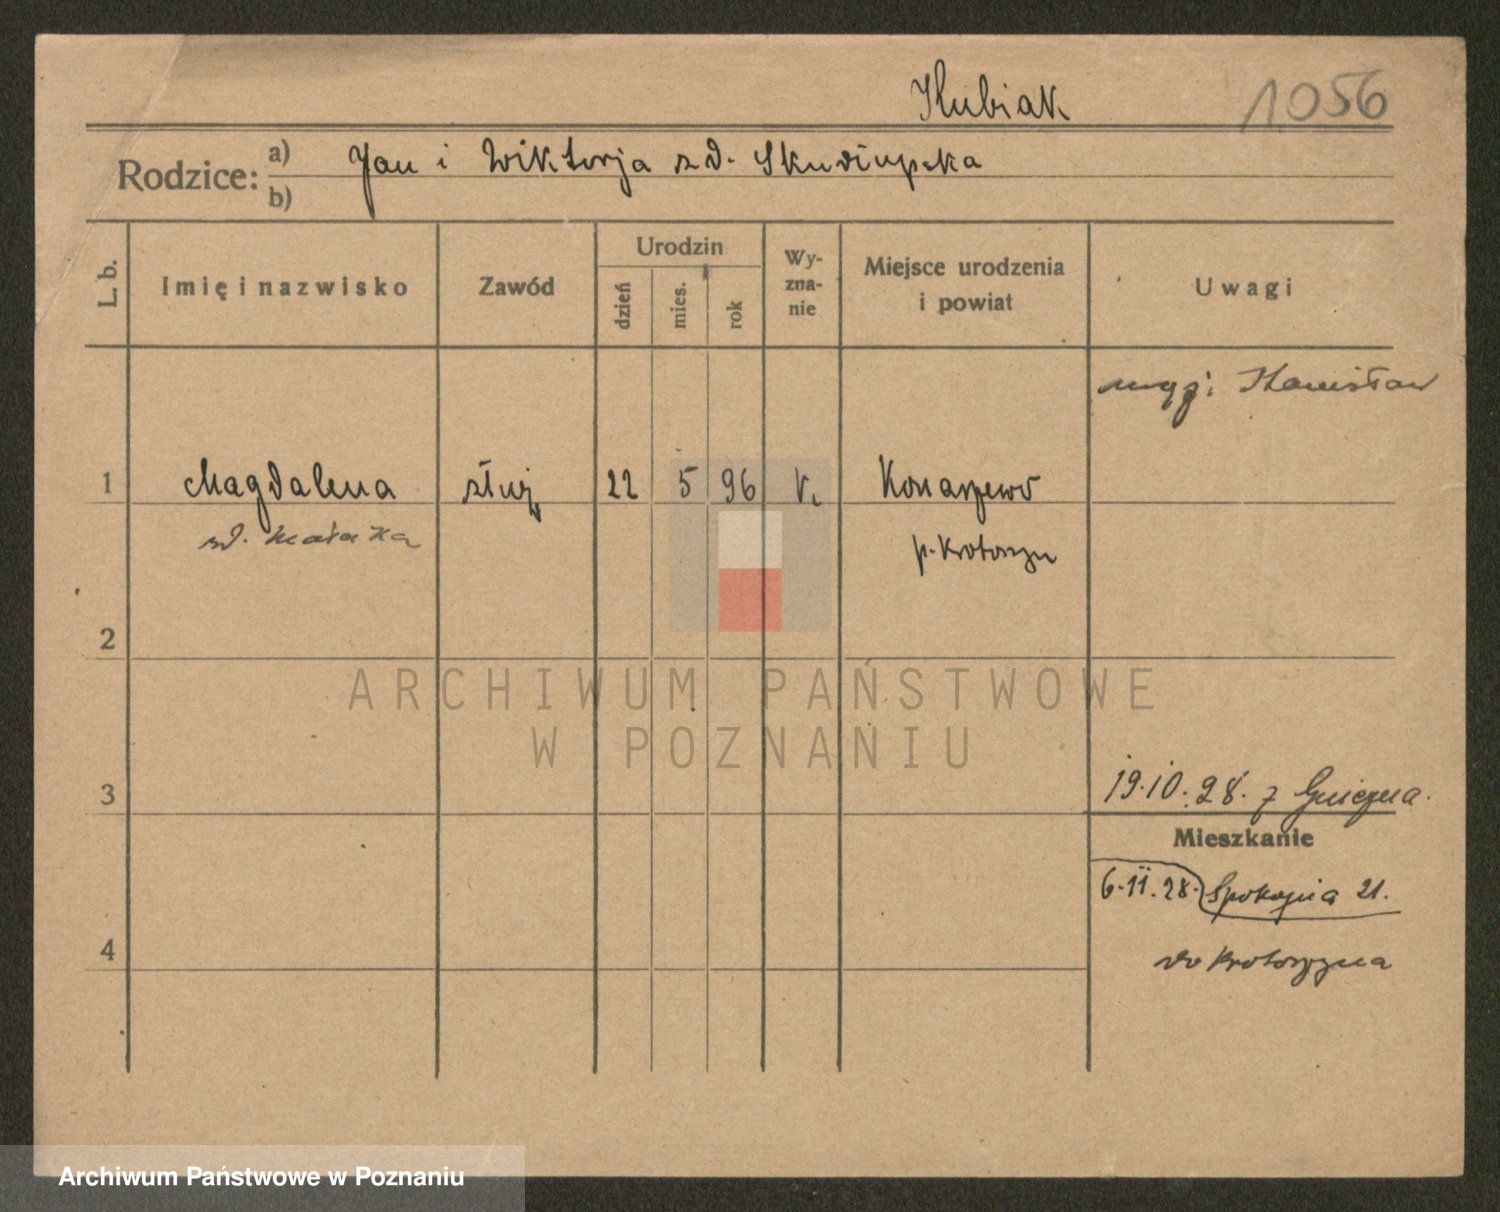 Kubiak 1056
Rodzice: a) Jan i Wiktorja zd.
b)
L. b. Imię i nazwisko Zawód Urodzin dzień mies. rok Wyznanie Miejsce urodzenia i powiat Uwagi
mąż: Stanisław
1 Magdalena służ 22 5 96 k. Konarzewo
zd. Małaka p. Krotoszyn
2
ARCHIWUM PAŃSTWOWE
W POZNANIU
3 19.10.28. z Gniezna.
Mieszkanie
6.11.28. Spokojna 21.
4 do Krotoszyna
Archiwum Państwowe w Poznaniu